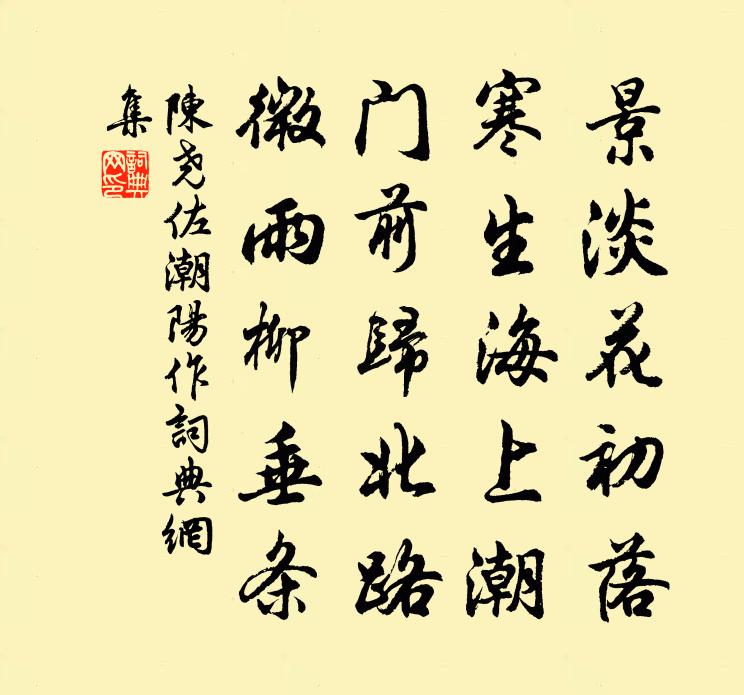 景淡花初落
寒生海上潮
门前歸北路
微雨柳垂条
陳尧佐潮陽作詞典網
集
詞典
网印